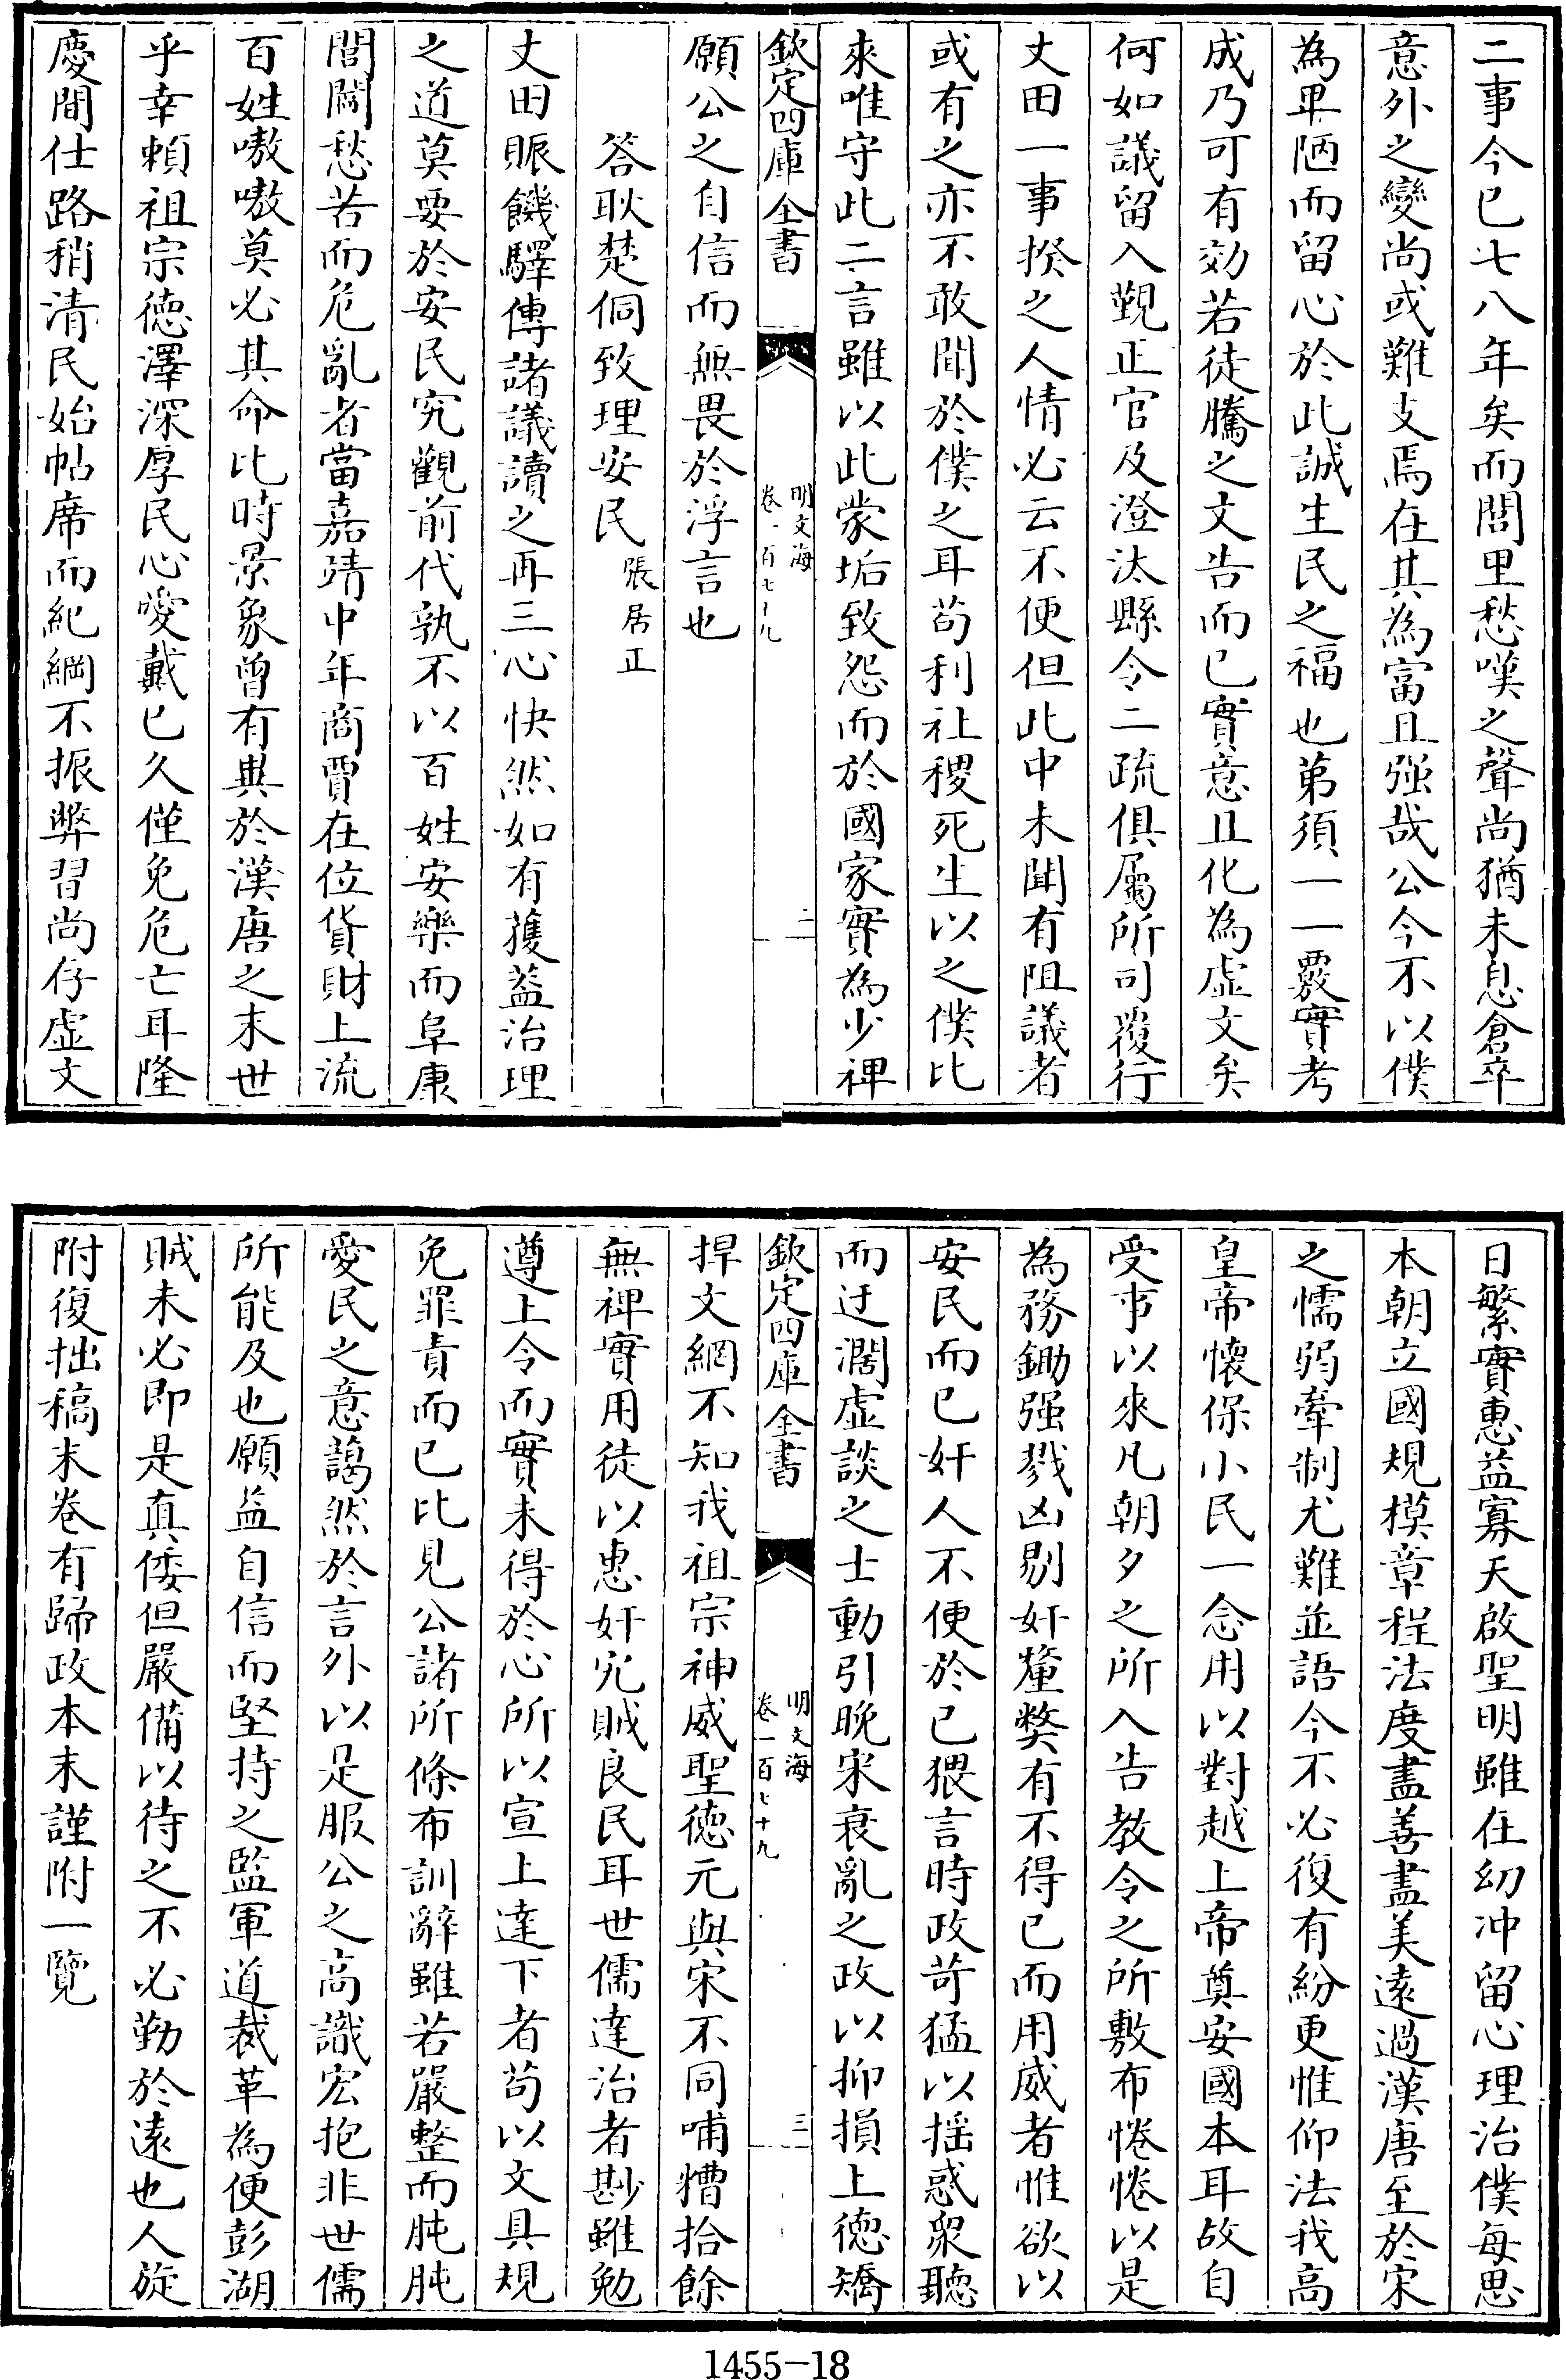 二事今已七八年矣而閭里愁嘆之聲尚猶未息倉卒
意外之變尚或難支焉在其為富且强哉公今不以僕
為卑陋而留心於此誠生民之福也第須一一覈實考
成乃可有効若徒騰之文告而已實意且化為虛文矣
何如議留入覲正官及澄汰縣令二疏俱屬所司覆行
丈田一事揆之人情必云不便但此中未聞有阻議者
或有之亦不敢聞於僕之耳苟利社稷死生以之僕比
來唯守此二言雖以此蒙垢致怨而於國家實為少裨
欽定四庫全書
明文海
卷一百七十九
二
願公之自信而無畏於浮言也
答耿楚侗致理安民 張居正
丈田賑饑驛傳諸議讀之再三心快然如有獲蓋治理
之道莫要於安民究觀前代孰不以百姓安樂而阜康
閭閻愁苦而危亂者當嘉靖中年商賈在位貨財上流
百姓嗷嗷莫必其命比時景象曾有異於漢唐之末世
乎幸賴祖宗德澤深厚民心愛戴已久僅免危亡耳隆
慶間仕路稍清民始帖席而紀綱不振弊習尚存虛文
日繁實惠益寡天啟聖明雖在幼冲留心理治僕每思
本朝立國規模章程法度盡善盡美遠過漢唐至於宋
之懦弱牽制尤難並語今不必復有紛更惟仰法我高
皇帝懷保小民一念用以對越上帝奠安國本耳故自
受事以來凡朝夕之所入告教令之所敷布惓惓以是
為務鋤强戮凶剔奸釐獘有不得已而用威者惟欲以
安民而已奸人不便於己猥言時政苛猛以搖惑衆聽
而迂濶虛談之士動引晚宋衰亂之政以抑損上德矯
欽定四庫全書
明文海
卷一百七十九
三
捍文網不知我祖宗神威聖德元與宋不同哺糟拾餘
無裨實用徒以惠奸宄賊良民耳世儒達治者尠雖勉
遵上令而實未得於心所以宣上達下者苟以文具規
免罪責而已比見公諸所條布訓辭雖若嚴整而肫肫
愛民之意藹然於言外以是服公之高識宏抱非世儒
所能及也願益自信而堅持之監軍道裁革為便彭湖
賊未必即是真倭但嚴備以待之不必勤於遠也人旋
附復拙稿末卷有歸政本末謹附一覽
1455-18